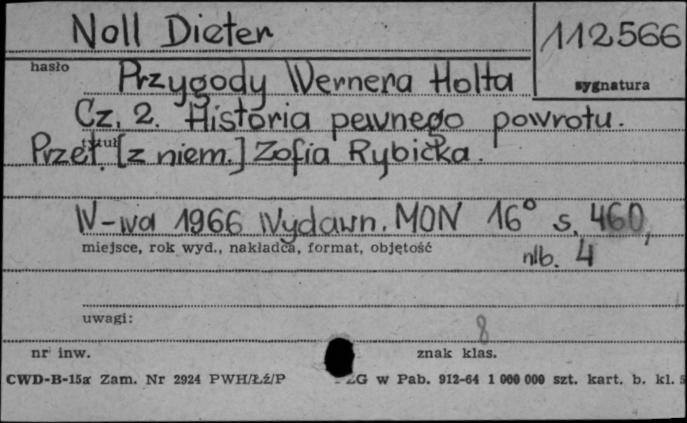 Noll Dieter
112566
hasło
Przygody Wernera Holta
sygnatura
Cz. 2. Historia pewnego powrotu.
tytuł
Przeł. [z niem.] Zofia Rybicka.
W-wa 1966 Wydawn. MON 16° s. 460,
miejsce, rok wyd., nakładca, format, objętość
nlb. 4
uwagi:
8
nr inw.
znak klas.
CWD-B-15a Zam. Nr 2924 PWH/Łź/P
w Pab. 912-64 1 000 000 szt. kart. b. kl. 5